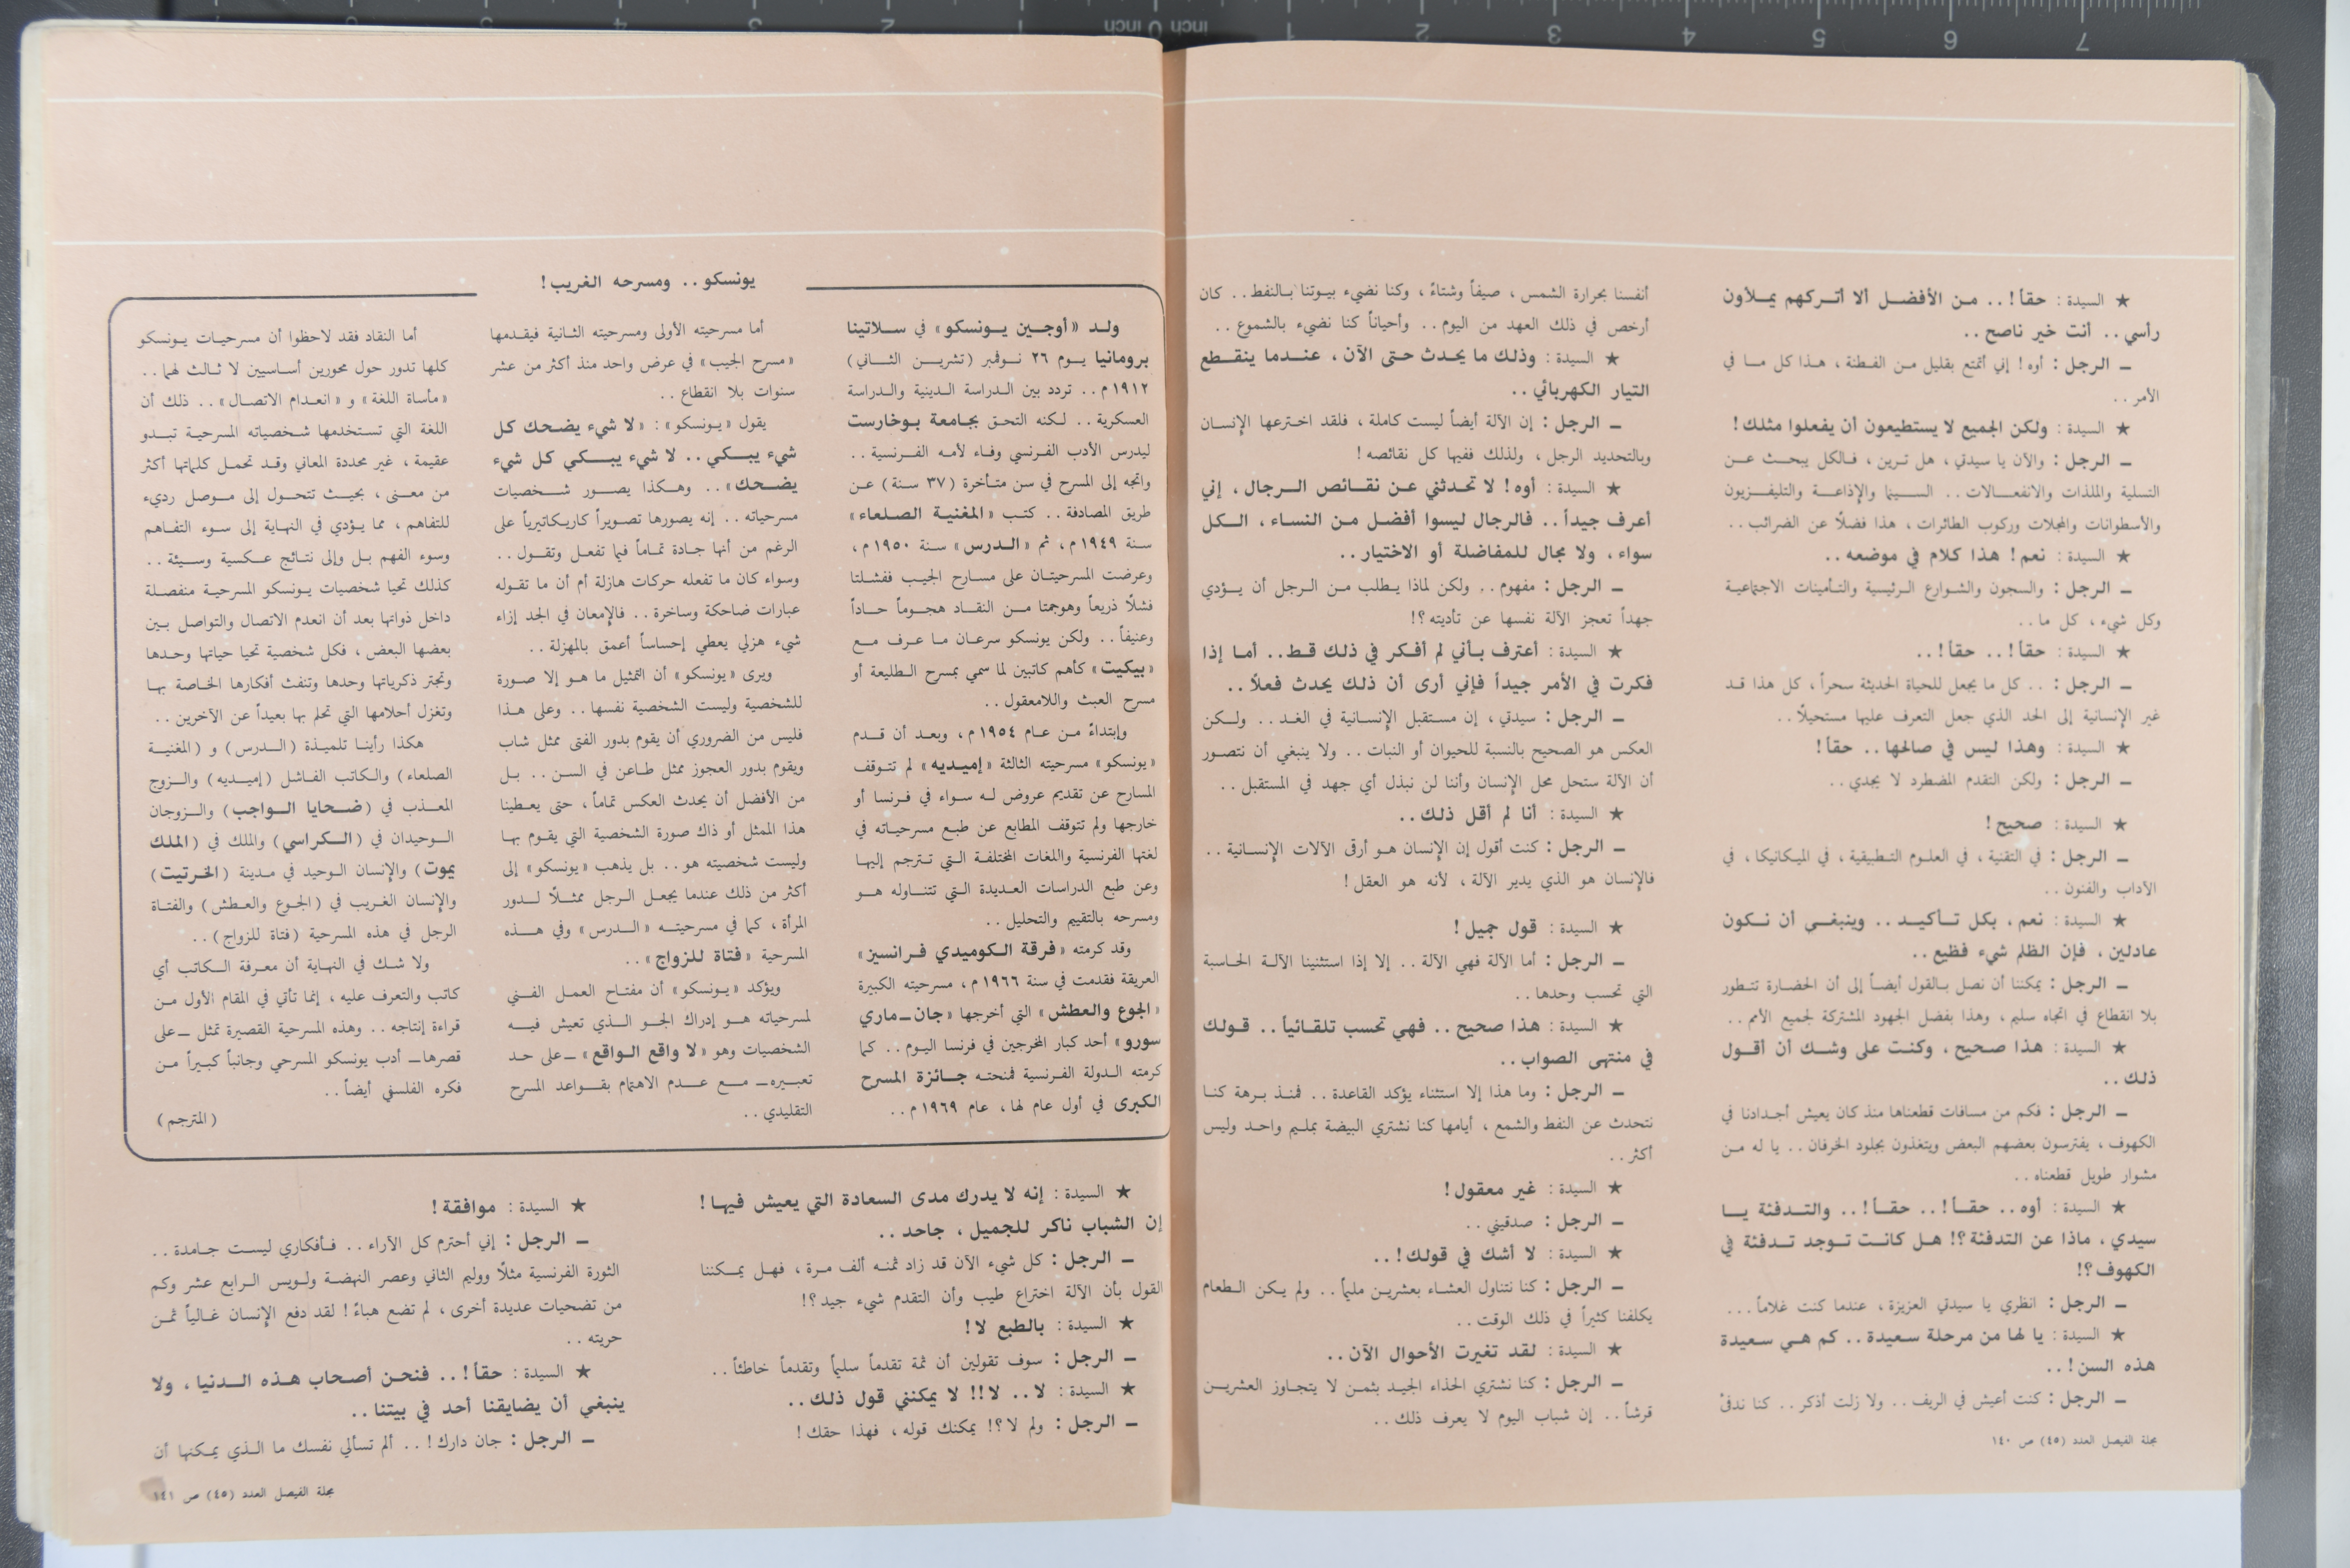 ★ السيدة : حقاً ! . . من الأفضل ألا أتركهم يملأون
رأسي . . أنت خير ناصح . .
ــ الرجل : أوه ! إني أتمتع بقليل من الفطنة ، هذا كل ما في
الأمر . .
★ السيدة : ولكن الجميع لا يستطيعون أن يفعلوا مثلك !
ــ الرجل : والآن يا سيدتي ، هل ترين ، فالكل يبحث عن
التسلية والملذات والانفعالات . . السينما والإذاعة والتليفزيون
والأسطوانات والمجلات وركوب الطائرات ، هذا فضلاً عن الضرائب . .
★ السيدة : نعم ! هذا كلام في موضعه . .
ــ الرجل : والسجون والشوارع الرئيسية والتأمينات الاجتماعية
وكل شيء ، كل ما . .
★ السيدة : حقاً ! . . حقاً ! . .
ــ الرجل : . . كل ما يجعل للحياة الحديثة سحراً ، كل هذا قد
غير الإنسانية إلى الحد الذي جعل التعرف عليها مستحيلاً . .
★ السيدة : وهذا ليس في صالحها . . حقاً !
ــ الرجل : ولكن التقدم المضطرد لا يجدي . .
★ السيدة : صحيح !
ــ الرجل : في التقنية ، في العلوم التطبيقية ، في الميكانيكا ، في
الآداب والفنون . .
★ السيدة : نعم ، بكل تأكيد . . وينبغي أن نكون
عادلين ، فإن الظلم شيء فظيع . .
ــ الرجل : يمكننا أن نصل بالقول أيضاً إلى أن الحضارة تتطور
بلا انقطاع في اتجاه سليم ، وهذا بفضل الجهود المشتركة لجميع الأمم . .
★ السيدة : هذا صحيح ، وكنت على وشك أن أقول
ذلك . .
ــ الرجل : فكم من مسافات قطعناها منذ كان يعيش أجدادنا في
الكهوف ، يفترسون بعضهم البعض ويتغذون بجلود الخرفان . . يا له من
مشوار طويل قطعناه . .
★ السيدة : أوه . . حقاً ! . . حقاً ! . . والتدفئة يا
سيدي ، ماذا عن التدفئة ؟! هل كانت توجد تدفئة في
الكهوف ؟!
ــ الرجل : انظري يا سيدتي العزيزة ، عندما كنت غلاماً . . .
★ السيدة : يا لها من مرحلة سعيدة . . كم هي سعيدة
هذه السن ! . .
ــ الرجل : كنت أعيش في الريف . . ولا زلت أذكر . . كنا ندفئ
مجلة الفيصل العدد (٤٥) ص ١٤٠
أنفسنا بحرارة الشمس ، صيفاً وشتاءً ، وكنا نضيء بيوتنا بالنفط . . كان
أرخص في ذلك العهد من اليوم . . وأحياناً كنا نضيء بالشموع . .
★ السيدة : وذلك ما يحدث حتى الآن ، عندما ينقطع
التيار الكهربائي . .
ــ الرجل : إن الآلة أيضاً ليست كاملة ، فلقد اخترعها الإنسان
وبالتحديد الرجل ، ولذلك ففيها كل نقائصه !
★ السيدة : أوه ! لا تحدثني عن نقائص الرجال ، إني
أعرف جيداً . . فالرجال ليسوا أفضل من النساء ، الكل
سواء ، ولا مجال للمفاضلة أو الاختيار . .
ــ الرجل : مفهوم . . ولكن لماذا يطلب من الرجل أن يؤدي
جهداً تعجز الآلة نفسها عن تأديته ؟!
★ السيدة : أعترف بأني لم أفكر في ذلك قط . . أما إذا
فكرت في الأمر جيداً فإني أرى أن ذلك يحدث فعلاً . .
ــ الرجل : سيدتي ، إن مستقبل الإنسانية في الغد . . ولكن
العكس هو الصحيح بالنسبة للحيوان أو النبات . . ولا ينبغي أن نتصور
أن الآلة ستحل محل الإنسان وأننا لن نبذل أي جهد في المستقبل . .
★ السيدة : أنا لم أقل ذلك . .
ــ الرجل : كنت أقول إن الإنسان هو أرقى الآلات الإنسانية . .
فالإنسان هو الذي يدير الآلة ، لأنه هو العقل !
★ السيدة : قول جميل !
ــ الرجل : أما الآلة فهي الآلة . . إلا إذا استثنينا الآلة الحاسبة
التي تحسب وحدها . .
★ السيدة : هذا صحيح . . فهي تحسب تلقائياً . . قولك
في منتهى الصواب . .
ــ الرجل : وما هذا إلا استثناء يؤكد القاعدة . . فمنذ برهة كنا
نتحدث عن النفط والشمع ، أيامها كنا نشتري البيضة بمليم واحد وليس
أكثر . .
★ السيدة : غير معقول !
ــ الرجل : صدقيني . .
★ السيدة : لا أشك في قولك ! . .
ــ الرجل : كنا نتناول العشاء بعشرين مليماً . . ولم يكن الطعام
يكلفنا كثيراً في ذلك الوقت . .
★ السيدة : لقد تغيرت الأحوال الآن . .
ــ الرجل : كنا نشتري الحذاء الجيد بثمن لا يتجاوز العشرين
قرشاً . . إن شباب اليوم لا يعرف ذلك . .
يونسكو . . ومسرحه الغريب !
ولد «أوجين يونسكو» في سلاتينا
برومانيا يوم ٢٦ نوفمبر (تشرين الثاني)
١٩١٢ م . . تردد بين الدراسة الدينية والدراسة
العسكرية . . لكنه التحق بجامعة بوخارست
ليدرس الأدب الفرنسي وفاء لأمه الفرنسية . .
واتجه إلى المسرح في سن متأخرة (٣٧ سنة) عن
طريق المصادفة . . كتب «المغنية الصلعاء»
سنة ١٩٤٩ م ، ثم «الدرس» سنة ١٩٥٠ م ،
وعرضت المسرحيتان على مسارح الجيب ففشلتا
فشلاً ذريعاً وهوجمتا من النقاد هجوماً حاداً
وعنيفاً . . ولكن يونسكو سرعان ما عرف مع
«بيكيت» كأهم كاتبين لما سمي بمسرح الطليعة أو
مسرح العبث واللامعقول . .
وابتداءً من عام ١٩٥٤ م ، وبعد أن قدم
«يونسكو» مسرحيته الثالثة «إميديه» لم تتوقف
المسارح عن تقديم عروض له سواء في فرنسا أو
خارجها ولم تتوقف المطابع عن طبع مسرحياته في
لغتها الفرنسية واللغات المختلفة التي تترجم إليها
وعن طبع الدراسات العديدة التي تتناوله هو
ومسرحه بالتقييم والتحليل . .
وقد كرمته «فرقة الكوميدي فرانسيز»
العريقة فقدمت في سنة ١٩٦٦ م ، مسرحيته الكبيرة
«الجوع والعطش» التي أخرجها «جان ــ ماري
سورو» أحد كبار المخرجين في فرنسا اليوم . . كما
كرمته الدولة الفرنسية فمنحته جائزة المسرح
الكبرى في أول عام لها ، عام ١٩٦٩ م . .
أما مسرحيته الأولى ومسرحيته الثانية فيقدمها
«مسرح الجيب» في عرض واحد منذ أكثر من عشر
سنوات بلا انقطاع . .
يقول «يونسكو» : «لا شيء يضحك كل
شيء يبكي . . لا شيء يبكي كل شيء
يضحك» . . وهكذا يصور شخصيات
مسرحياته . . إنه يصورها تصويراً كاريكاتيرياً على
الرغم من أنها جادة تماماً فيما تفعل وتقول . .
وسواء كان ما تفعله حركات هازلة أم أن ما تقوله
عبارات ضاحكة وساخرة . . فالإمعان في الجد إزاء
شيء هزلي يعطي إحساساً أعمق بالمهزلة . .
ويرى «يونسكو» أن التمثيل ما هو إلا صورة
للشخصية وليست الشخصية نفسها . . وعلى هذا
فليس من الضروري أن يقوم بدور الفتى ممثل شاب
ويقوم بدور العجوز ممثل طاعن في السن . . بل
من الأفضل أن يحدث العكس تماماً ، حتى يعطينا
هذا الممثل أو ذاك صورة الشخصية التي يقوم بها
وليست شخصيته هو . . بل يذهب «يونسكو» إلى
أكثر من ذلك عندما يجعل الرجل ممثلاً لدور
المرأة ، كما في مسرحيته «الدرس» وفي هذه
المسرحية «فتاة للزواج» . .
ويؤكد «يونسكو» أن مفتاح العمل الفني
لمسرحياته هو إدراك الجو الذي تعيش فيه
الشخصيات وهو «لا واقع الواقع» ــ على حد
تعبيره ــ مع عدم الاهتمام بقواعد المسرح
التقليدي . .
أما النقاد فقد لاحظوا أن مسرحيات يونسكو
كلها تدور حول محورين أساسيين لا ثالث لهما . .
«مأساة اللغة» و «انعدام الاتصال» . . ذلك أن
اللغة التي تستخدمها شخصياته المسرحية تبدو
عقيمة ، غير محددة المعاني وقد تحمل كلماتها أكثر
من معنى ، بحيث تتحول إلى موصل رديء
للتفاهم ، مما يؤدي في النهاية إلى سوء التفاهم
وسوء الفهم بل وإلى نتائج عكسية وسيئة . .
كذلك تحيا شخصيات يونسكو المسرحية منفصلة
داخل ذواتها بعد أن انعدم الاتصال والتواصل بين
بعضها البعض ، فكل شخصية تحيا حياتها وحدها
وتجتر ذكرياتها وحدها وتنفث أفكارها الخاصة بها
وتغزل أحلامها التي تحلم بها بعيداً عن الآخرين . .
هكذا رأينا تلميذة (الدرس) و (المغنية
الصلعاء) والكاتب الفاشل (إميديه) والزوج
المعذب في (ضحايا الواجب) والزوجان
الوحيدان في (الكراسي) والملك في (الملك
يموت) والإنسان الوحيد في مدينة (الخرتيت)
والإنسان الغريب في (الجوع والعطش) والفتاة
الرجل في هذه المسرحية (فتاة للزواج) . .
ولا شك في النهاية أن معرفة الكاتب أي
كاتب والتعرف عليه ، إنما تأتي في المقام الأول من
قراءة إنتاجه . . وهذه المسرحية القصيرة تمثل ــ على
قصرها ــ أدب يونسكو المسرحي وجانباً كبيراً من
فكره الفلسفي أيضاً . .
(المترجم)
★ السيدة : إنه لا يدرك مدى السعادة التي يعيش فيها !
إن الشباب ناكر للجميل ، جاحد . .
ــ الرجل : كل شيء الآن قد زاد ثمنه ألف مرة ، فهل يمكننا
القول بأن الآلة اختراع طيب وأن التقدم شيء جيد ؟!
★ السيدة : بالطبع لا !
ــ الرجل : سوف تقولين أن ثمة تقدماً سليماً وتقدماً خاطئاً . .
★ السيدة : لا . . لا !! لا يمكنني قول ذلك . .
ــ الرجل : ولم لا ؟! يمكنك قوله ، فهذا حقك !
★ السيدة : موافقة !
ــ الرجل : إني أحترم كل الآراء . . فأفكاري ليست جامدة . .
الثورة الفرنسية مثلاً ووليم الثاني وعصر النهضة ولويس الرابع عشر وكم
من تضحيات عديدة أخرى ، لم تضع هباءً ! لقد دفع الإنسان غالياً ثمن
حريته . .
★ السيدة : حقاً ! . . فنحن أصحاب هذه الدنيا ، ولا
ينبغي أن يضايقنا أحد في بيتنا . .
ــ الرجل : جان دارك ! . . ألم تسألي نفسك ما الذي يمكنها أن
مجلة الفيصل العدد (٤٥) ص ١٤١
7 6 5 4 3 2 1 inch 0 inch 1 2 3 4 5 6 7